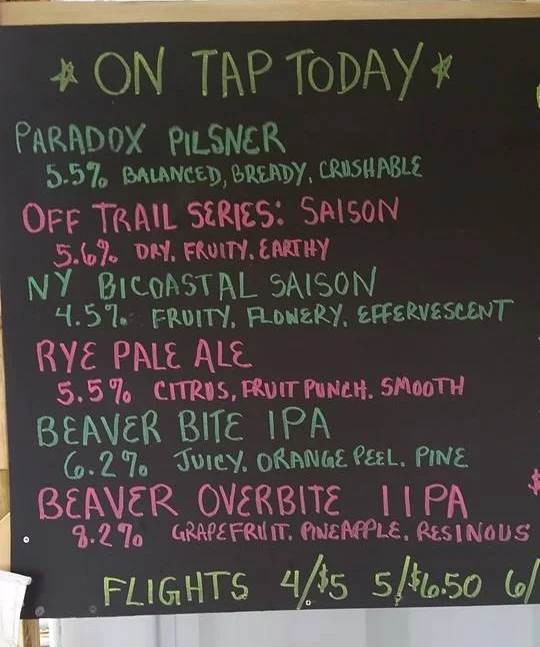 ON TAP TODAY
PARADOX PILSNER
5.5% BALANCED, BREADY, CRUSHABLE
OFF TRAIL SERIES: SAISON
5.6% DRY, FRUITY, EARTHY
NY BICOASTAL SAISON
4.5% FRUITY, FLOWERY, EFFERVESCENT
RYE PALE ALE
5.5% CITRUS, FRUIT PUNCH, SMOOTH
BEAVER BITE IPA
6.2% JUICY, ORANGE PEEL, PINE
BEAVER OVERBITE IIPA
8.2% GRAPEFRUIT, PINEAPPLE, RESINOUS
$
FLIGHTS 4/$5 5/$6.50 6/